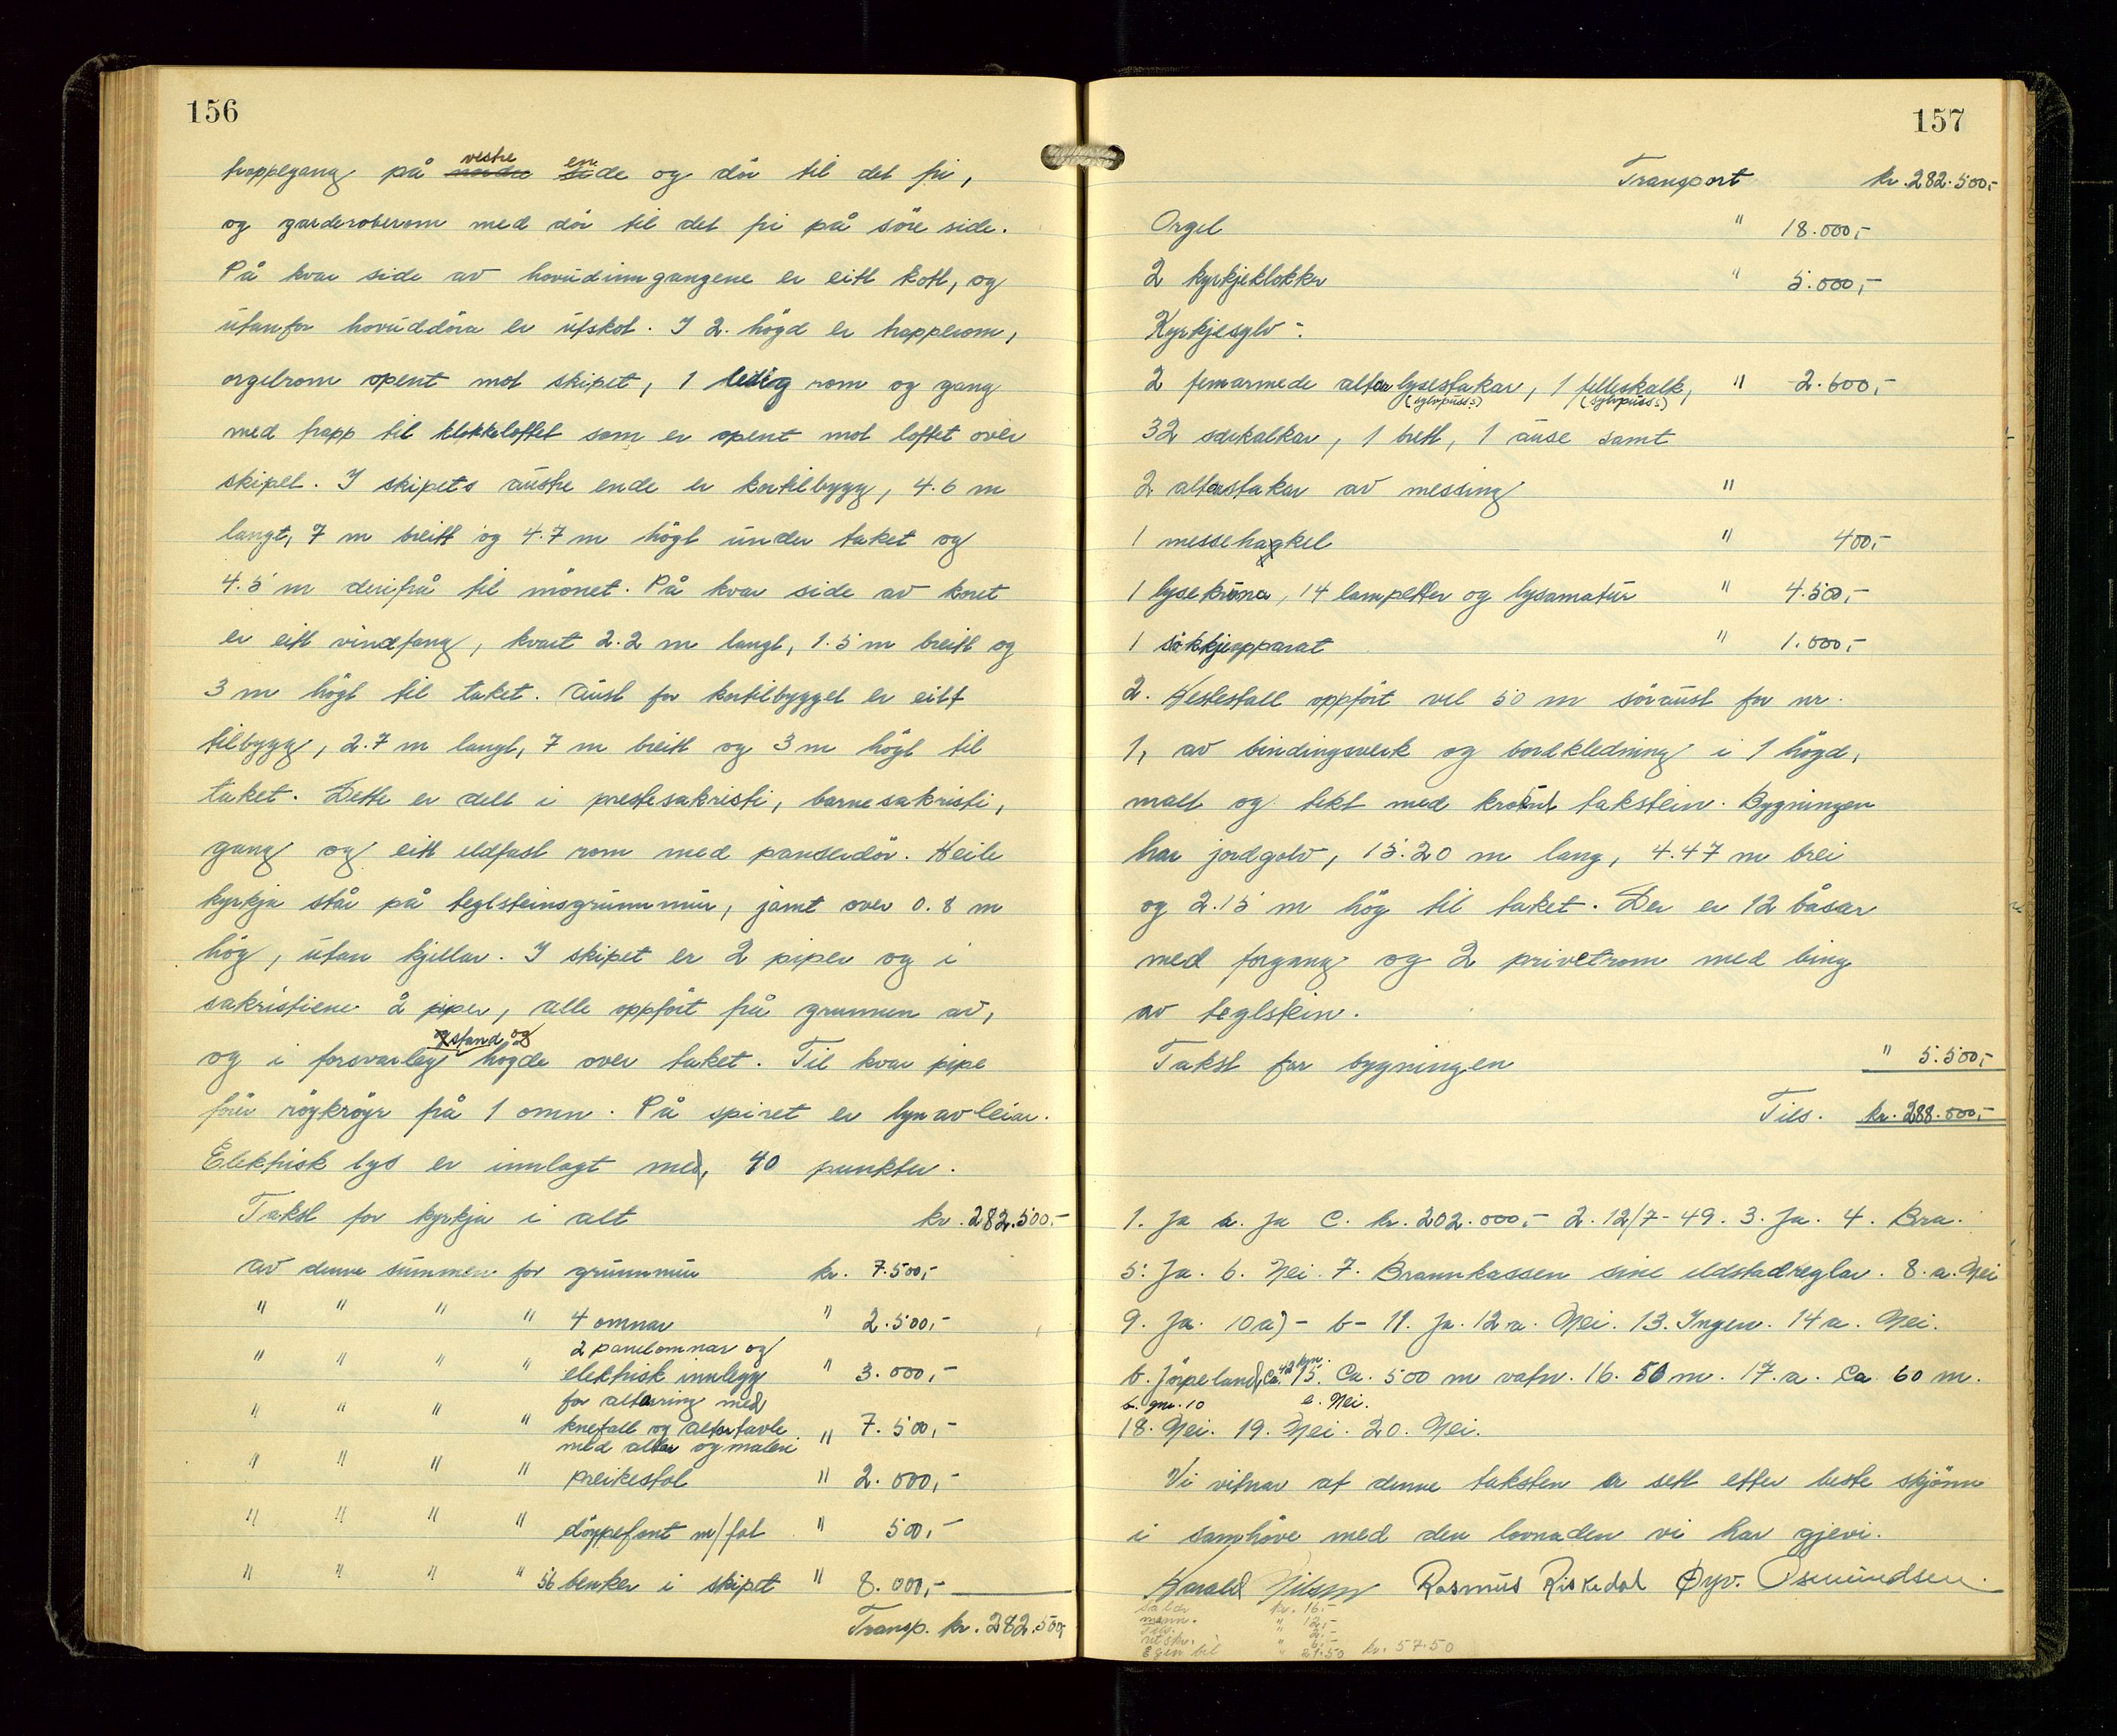 156
trappegang på vestre ende og dör til det fri,
og garderoberom med dör til det fri på söre side.
På kvar side av hovudinngangene er eitt kott, og
utanfor hovuddöra er utskot. I 2. högd er trapperom,
orgelrom opent mot skipet, 1 ledig rom og gang
med trapp til klokkeloftet som er opent mot loftet over
skipet. I skipets austre ende er kortilbygg, 4.6 m
langt, 7 m breitt og 4.7 m högt under taket og
4.5 m derifrå til mönet. På kvar side av koret
er eitt vindfang, kvart 2.2 m langt, 1.5 m breitt og
3 m högt til taket. Aust for kortilbygget er eitt
tilbygg, 2.7 m langt, 7 m breitt og 3 m högt til
taket. Dette er delt i prestesakristi, barnesakristi,
gang og eitt eldfast rom med panserdör. Heile
kyrkja står på teglsteinsgrunnmur, jamt over 0.8 m
hög, utan kjellar. I skipet er 2 piper og i
sakristiene 2 piper, alle oppfört frå grunnen av,
og i forsvarleg stand og högde over taket. Til kvar pipe
förer röykröyr frå 1 omn. På spiret er lynavleiar.
Elektrisk lys er innlagt med 40 punkter.
Takst for kyrkja i alt kr. 282.500.-
av denne summen for grunnmur kr. 7.500,-
" " " " 4 omnar " 2.500,-
2 panelomnar og
" " " " elektrisk innlegg " 3.000,-
for altarring med
" " " " knefall og altartavle " 7.500,-
med altar og maleri
" " " " preikestol " 2.000,-
" " " " döypefont m/fat " 500,-
" " " " 56 benker i skipet " 8.000,-
Transp. kr. 282.500,-
157
Transport kr. 282.500,-
Orgel " 18.000,-
2 kyrkjeklokker " 5.000,-
Kyrkjesylv:
2 femarmede altarlysestakar, 1 felleskalk, " 2.600,-
(sylvpuss:) (sylvpuss:)
32 særkalkar, 1 brett, 1 ause samt
2 altarstakar av messing "
1 messehagkel " 400,-
1 lysekrona, 14 lampetter og lysamatur " 4.500,-
1 sökkjeapparat " 1.000,-
2. Hestestall oppfört vel 50 m söraust for nr.
1, av bindingsverk og bordkledning i 1 högd,
malt og tekt med krokut takstein. Bygningen
har jordgolv, 15.20 m lang, 4.47 m brei
og 2.15 m hög til taket. Der er 12 båsar
med forgang og 2 privetrom med bing
av teglstein.
Takst for bygningen " 5.500,-
Tils. kr. 288.000,-
1. Ja b. Ja c. kr. 202.000,- 2. 12/7-49. 3. Ja. 4. Bra.
5. Ja. 6. Nei. 7. Brannkassen sine eldstadreglar. 8. a. Nei
9. Ja. 10a) - b - 11. Ja. 12 a. Nei. 13. Ingen. 14 a. Nei.
b. Jörpeland, ca. 42 km. 15. Ca. 500 m vatn. 16. 50 m. 17. a. Ca 60 m.
b. gnr. 10 e. Nei.
18. Nei. 19. Nei. 20. Nei.
Vi vitnar at denne taksten er sett etter beste skjönn
i samhöve med den lovnaden vi har gjevi.
Harald Nilsen Rasmus Riskedal Öyv. Osmundsen.
kr. 16.-
mann. " 12,-
Tils. " 2.-
utskr. " 6.-
Egen bil " 21.50 kr. 57.50